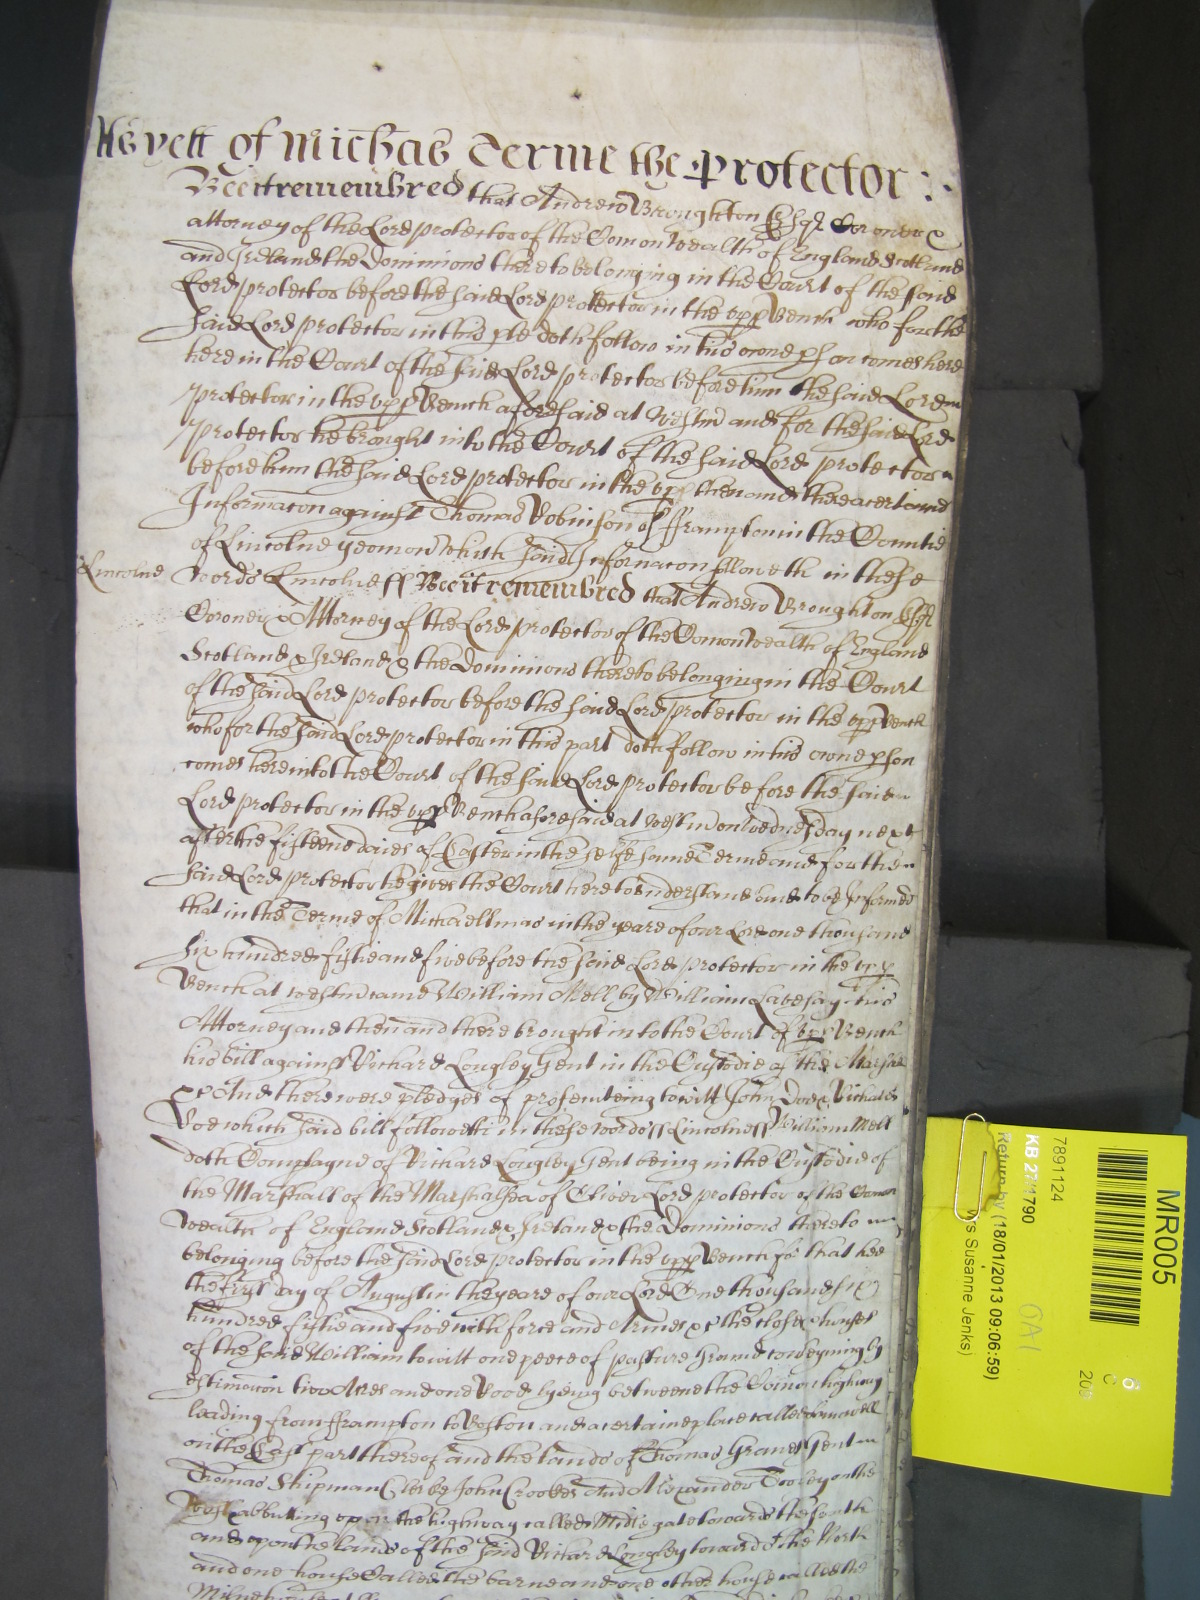 As yett of Michas Terme the Protector :
Bee it remembred that Andrew Broughton Esqr Coroner &
attorney of the Lord protector of the Comonwealth of England Scotland
and Ireland & the Dominions thereto belonging in the Court of the said
Lord protector before the said Lord protector in the upp Bench who for the
said Lord protector in this ple doth follow in his owne pson comes here
here in the Court of the said Lord protector before him the said Lord
protector in the upp Bench aforesaid at Westm and for the said Lord
protector he brought into the Court of the said Lord protector
before him the said Lord protector in the upp then and there a certaine
Informacon against Thomas Robinson of fframpton in the Countie
of Lincolne yeoman which said Informacon followeth in these
Lincolne
words Lincolne ss Bee it remembred that Andrew Broughton Esqr
Coroner & Attorney of the Lord protector of the Comonwealth of England
Scotland & Ireland & the Dominions thereto belonging in the Court
of the said Lord protector before the said Lord protector in the upp Bench
who for the said Lord protector in this part doth follow in his owne pson
comes here into the Court of the said Lord protector before the said
Lord protector in the upp Bench aforesaid at Westm on Wednesday next
after the fifteene daies of Easter in the selfe same Terme and for the
said Lord protector he gives the Court here to understand and to be Informed
that in the Terme of Michaellmas in the yeare of our Lord one thousand
six hundred fiftie and five before the said Lord protector in the upp
Bench at Westm came William Mell by William Lavesay his
Attorney and then and there brought into the Court of upp Bench
his bill against Richard Longley Gent in the Custodie of the Marshall
&c And there were pledges of prosecuteing to witt John Doe & Richard
Roe which said bill followeth in these words ss Lincolne ss William Mell
doth Complayne of Richard Longley Gent being in the Custodie of
the Marshall of the Marshalsea of Oliver Lord protector of the Comon
wealth of England Scotland & Ireland & the Dominions thereto
belonging before the said Lord protector in the upp Bench for that hee
the first day of August in the yeare of our Lord One thousand six
hundred fiftie and five with force and Armes &c the close & houses
of the said William to witt one peece of pasture Ground conteyning by
estimacon two Acres and one Rood lyeing betweene the Comon highway
leading from fframpton to Boston and a certaine place called
on the East part thereof and the lands of Thomas Graves Gent
Thomas Shipman Clerke John Crookes And Alexander Tooley on the
West abbutting upon the highway called Midle gate towards the South
and upon the lands of the said Richard Longley toward the North
and one house Called the barne and one other house called the
MR005
7891124
KB 27/1790
Return by (18/01/2013 09:06:59)
Susanne Jenks)